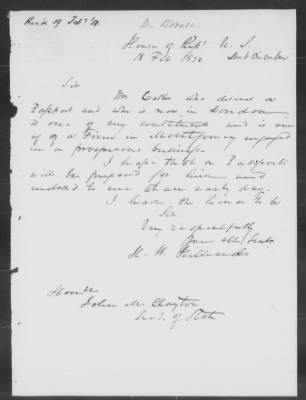 Recd 19 Feby
House of Reps U. S.
18 Feb 1850
Sir
Mr who desires a
Passport and who is now in London
is one of my constituents and is one
of a Firm in Montgomery engaged
in a prosperous business.
I hope that a Passport
will be prepared for him and
enclosed to me at an early day.
I have the honor to be
Sir
Very respectfully
Your Obt Servt
H. W. Hilliard
Honble
John M. Clayton
Secy. of State